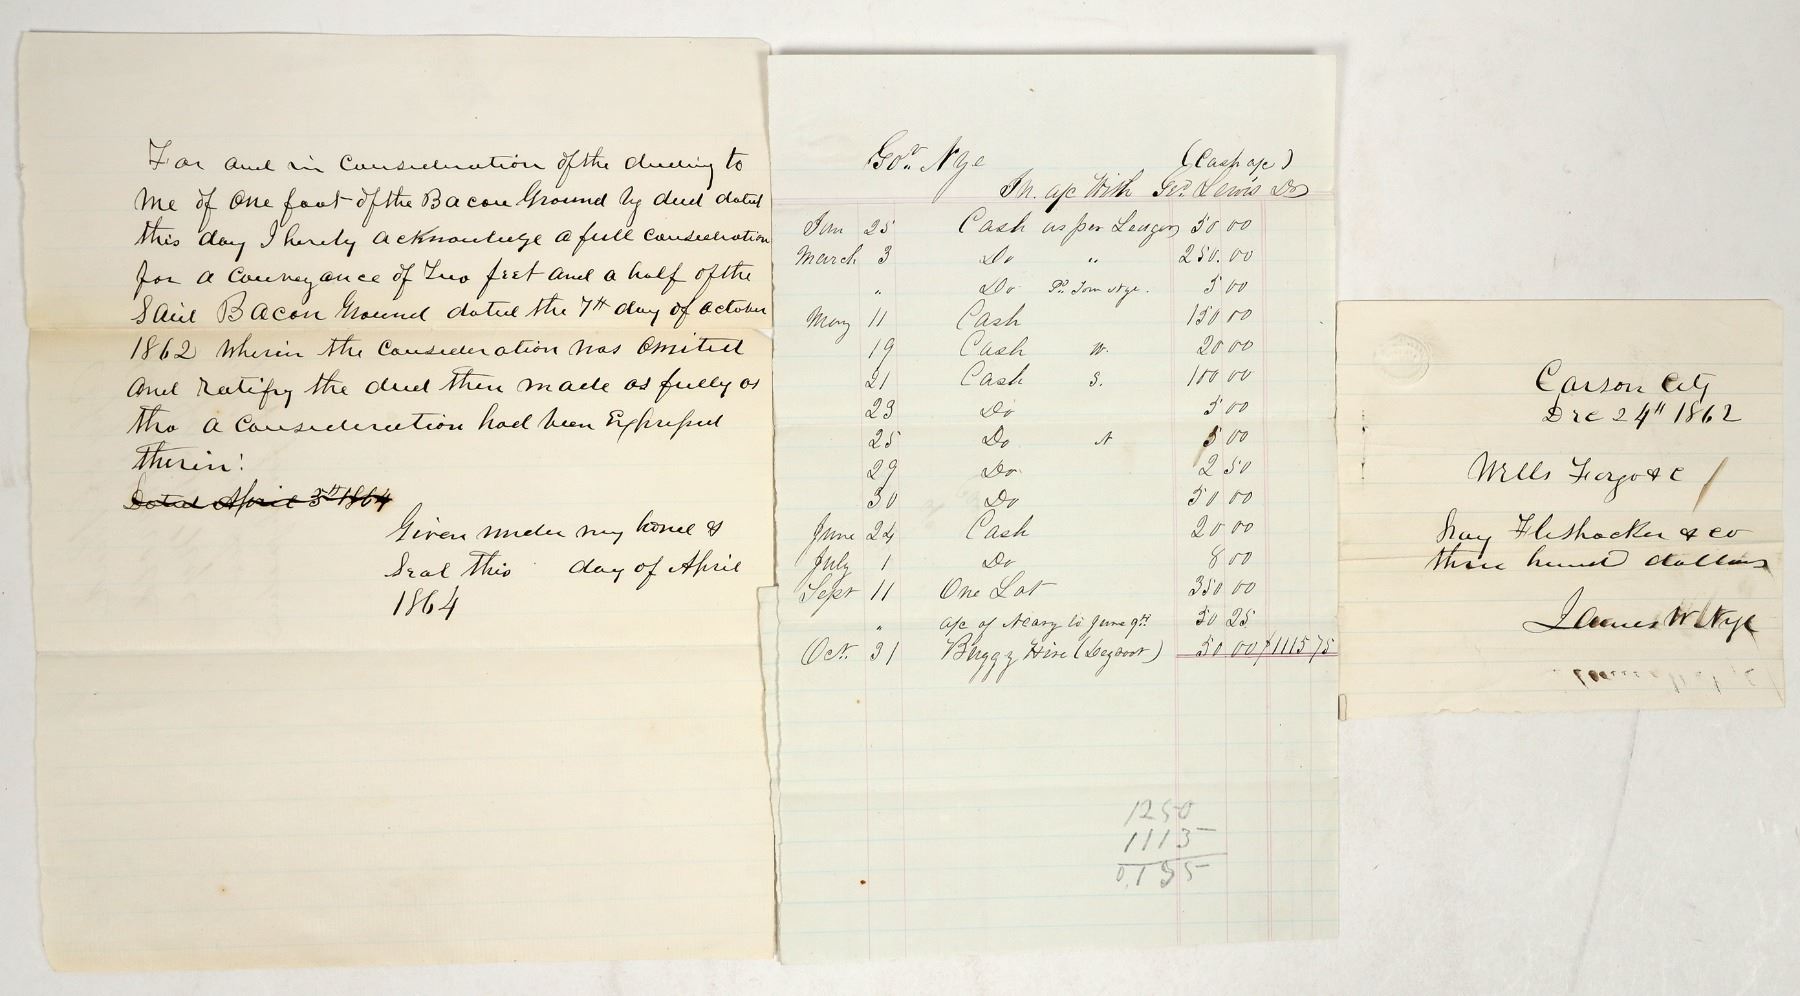 For and in consideration of the deeding to
me of one foot of the Bacon Ground by deed dated
this day I hereby acknowledge a full consideration
for a conveyance of Two feet and a half of the
Said Bacon Ground dated the 7th day of october
1862 wherin the consideration was omited
and ratify the deed then made as fully as
tho a consideration had been Expressed
therin:
Dated April 3th 1864
Given under my hand &
Seal this day of April
1864
Gov. Nye (Cash a/c)
In a/c With Geo. Lewis Dr
Jan 25 Cash as per Ledger 50 00
March 3 Do " 250.00
" Do Pr. Tom Nye. 5 00
May 11 Cash 150 00
19 Cash W. 20 00
21 Cash S. 100 00
23 Do 5 00
25 Do N 5 00
29 Do 2 50
30 Do 50 00
June 24 Cash 20 00
July 1 Do 8 00
Sept 11 One Lot 350 00
" a/c of Neary to June 9th 50 25
Oct. 31 Buggy Hire 50 00 $1115 75
1250
1115
0,135
Carson City
Dec 24th 1862
Wells Fargo & C
Pay Fleshacker & Co
three hund dollars
James W Nye